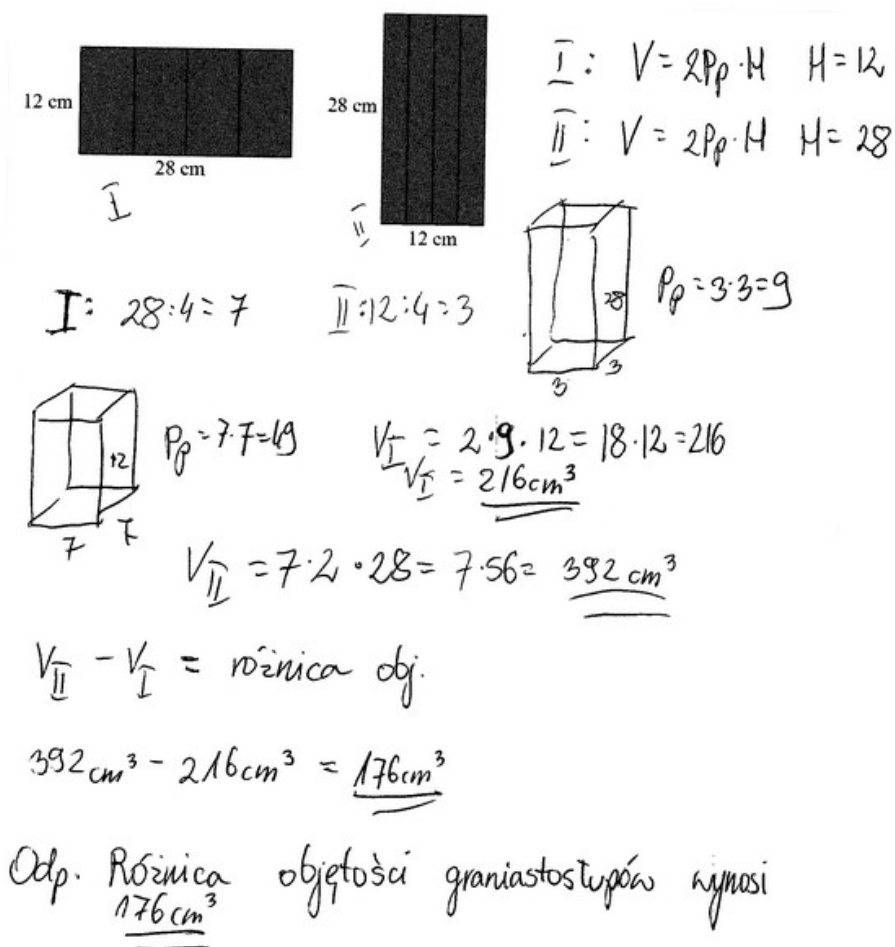 I: V = 2Pp·H H = 12
12 cm
28 cm
II: V = 2Pp·H H = 28
28 cm
I
II
12 cm
I: 28:4 = 7
II: 12:4 = 3
28
3
3
Pp = 3·3 = 9
12
7
7
Pp = 7·7 = 49
VI = 2·9·12 = 18·12 = 216
VI = 216 cm³
VII = 7·2·28 = 7·56 = 392 cm³
VII - VI = różnica obj.
392 cm³ - 216 cm³ = 176 cm³
Odp. Różnica objętości graniastosłupów wynosi
176 cm³